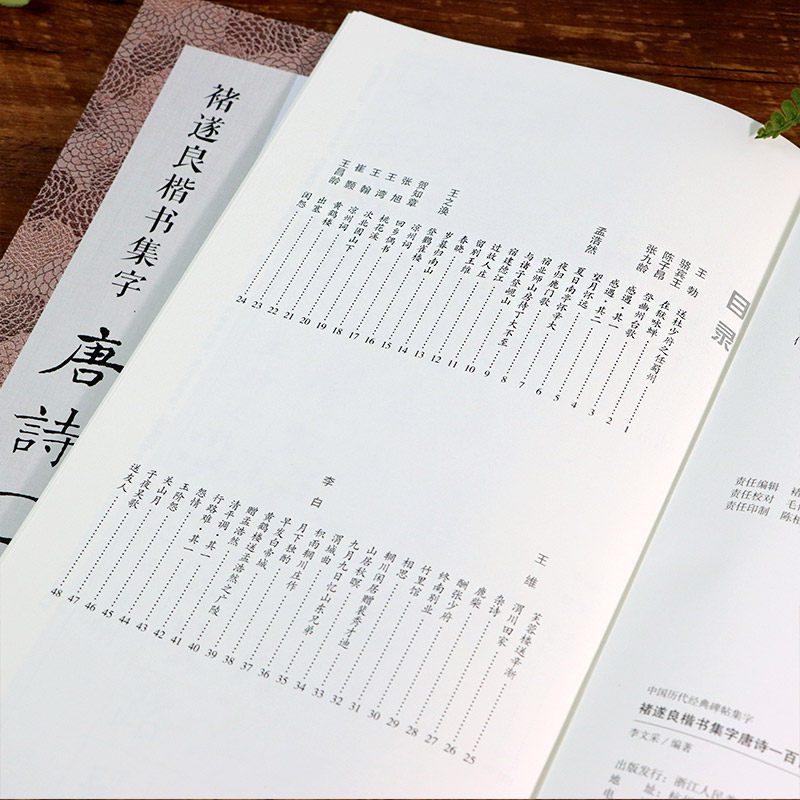 褚遂良楷书集字
唐詩一
目录
王勃 送杜少府之任蜀州 1
骆宾王 在狱咏蝉 2
陈子昂 登幽州台歌 3
张九龄 感遇·其一 4
感遇·其二 5
望月怀远 6
孟浩然 夏日南亭怀辛大 7
夜归鹿门歌 8
宿业师山房待丁大不至 9
与诸子登岘山 10
宿建德江 11
过故人庄 12
留别王维 13
春晓 14
岁暮归南山 15
王之涣 登鹳雀楼 16
凉州词 17
贺知章 回乡偶书 18
张旭 桃花溪 19
王湾 次北固山下 20
王翰 凉州词 21
崔颢 黄鹤楼 22
王昌龄 出塞 23
闺怨 24
芙蓉楼送辛渐 25
王雄 渭川田家 26
杂诗 27
鹿柴 28
酬张少府 29
终南别业 30
竹里馆 31
相思 32
辋川闲居赠裴秀才迪 33
山居秋暝 34
九月九日忆山东兄弟 35
渭城曲 36
积雨辋川庄作 37
李白 月下独酌 38
早发白帝城 39
黄鹤楼送孟浩然之广陵 40
赠孟浩然 41
清平调 42
行路难·其一 43
怨情 44
玉阶怨 45
关山月 46
子夜吴歌 47
送友人 48
责任编辑 褚
责任校对 毛
责任印制 陈
中国历代经典碑帖集字
褚遂良楷书集字唐诗一百
李文采/编著
出版发行：浙江人民美
地 址：杭
电